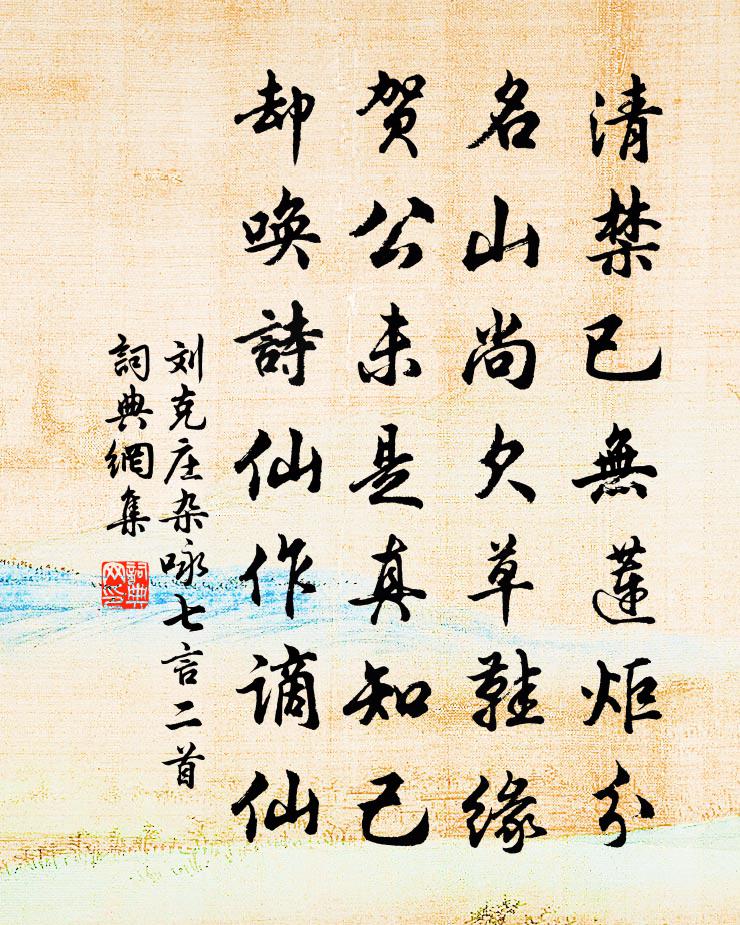 清禁已無蓮炬分
名山尚欠草鞋緣
贺公未是真知己
却喚詩仙作谪仙
刘克庄杂咏七言二首
詞典網集
詞典
网印